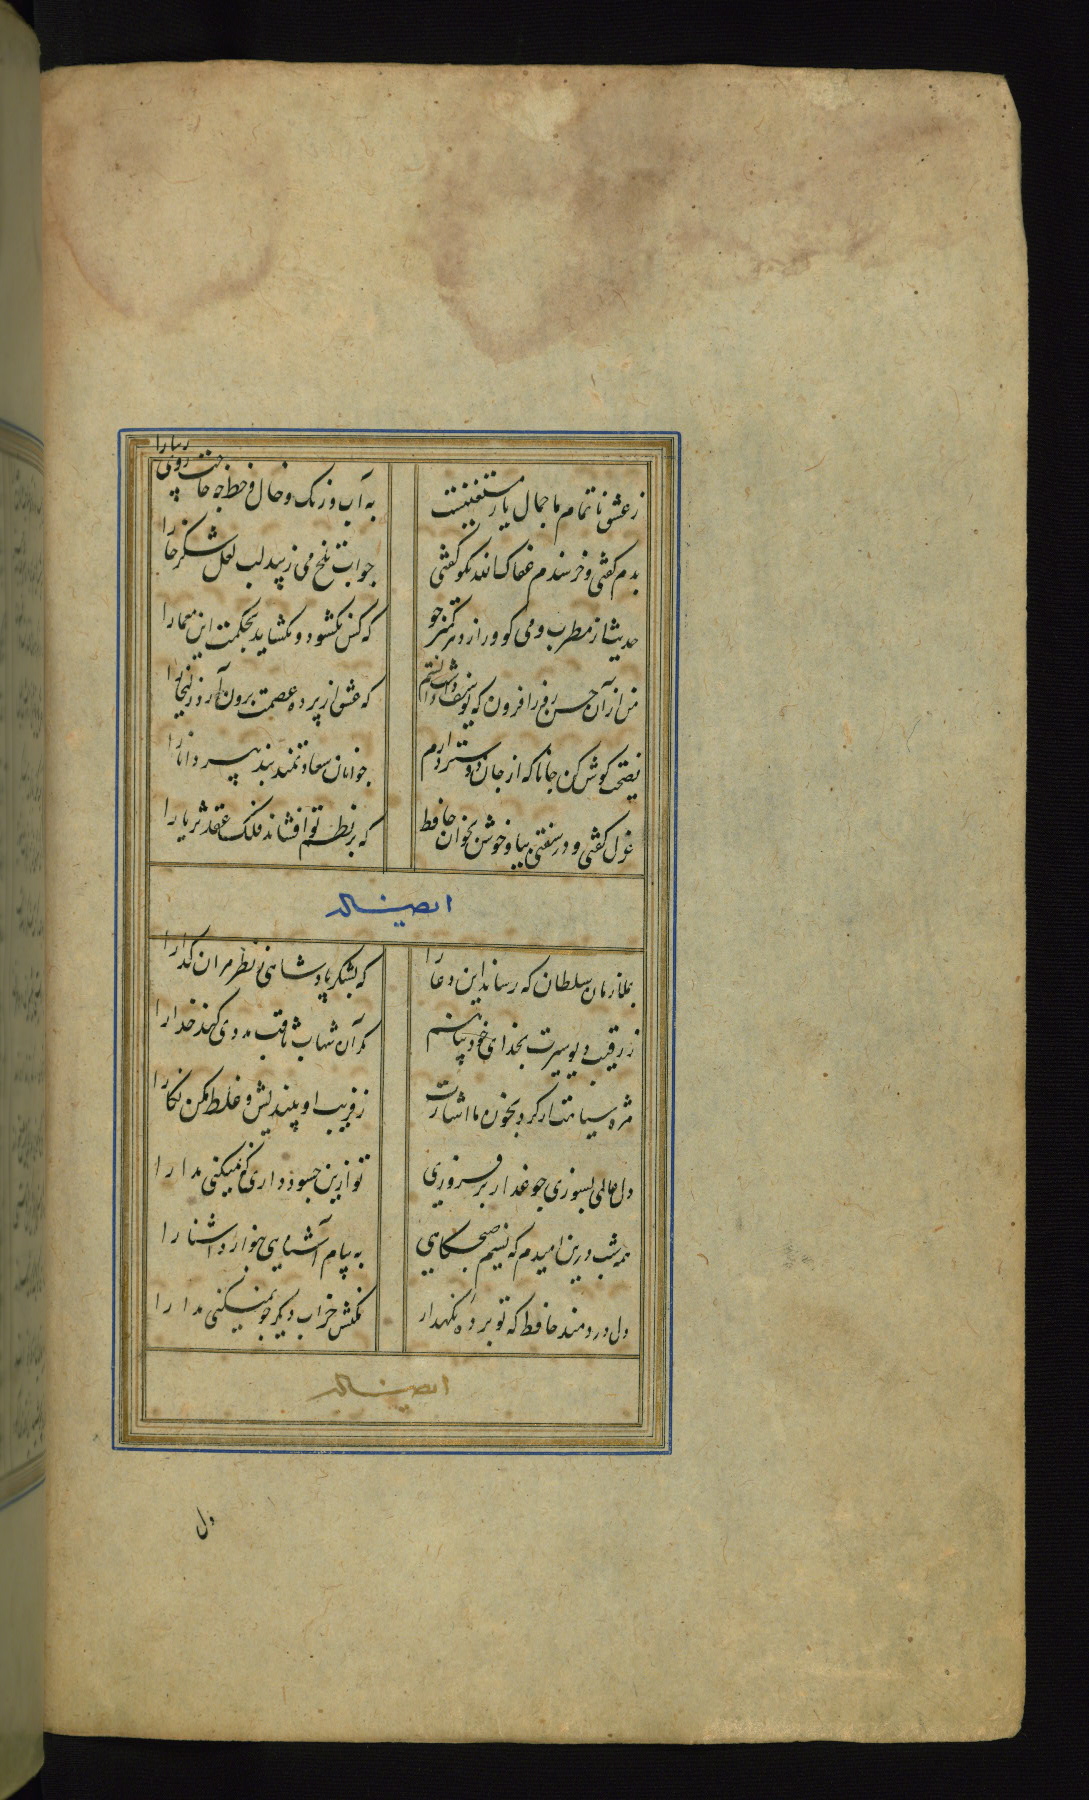 ز عشق ناتمام ما جمال یار مستغنیست به آب و رنک و خال و خط چه حاجت روی زیبا را
بدم کفتی و خرسندم عفاک الله نکو کفتی جواب تلخ می زیبد لب لعل شکرخا را
حدیث از مطرب و می کو و راز دهر کمتر جو که کس نکشود و نکشاید بحکمت این معما را
من از آن حسن روز افزون که یوسف داشت دانستم که عشق از پرده عصمت برون آرد زلیخا را
نصیحت کوش کن جانا که از جان دوستر دارم جوانان سعادتمند پند پیر دانا را
غزل کفتی و در سفتی بیا و خوش بخوان حافظ که بر نظم تو افشاند فلک عقد ثریا را
ایضا له
بملازمان سلطان که رساند این دعا را که بشکر پادشاهی ز نظر مران کدا را
ز رقیب دیوسیرت بخدای خود پناهم مکر آن شهاب ثاقب مددی کند خدا را
مژه سیاهت ار کرد بخون ما اشارت ز فریب او بیندیش و غلط مکن نکارا
دل عالمی بسوزی چو عذار برفروزی تو ازین چه سود داری که نمیکنی مدارا
همه شب درین امیدم که نسیم صبحکاهی به پیام آشنایی بنوازد آشنا را
دل دردمند حافظ که تو برده نکهدار مکنش خراب دیکر چو نمیکنی مدارا
ایضا له
دل